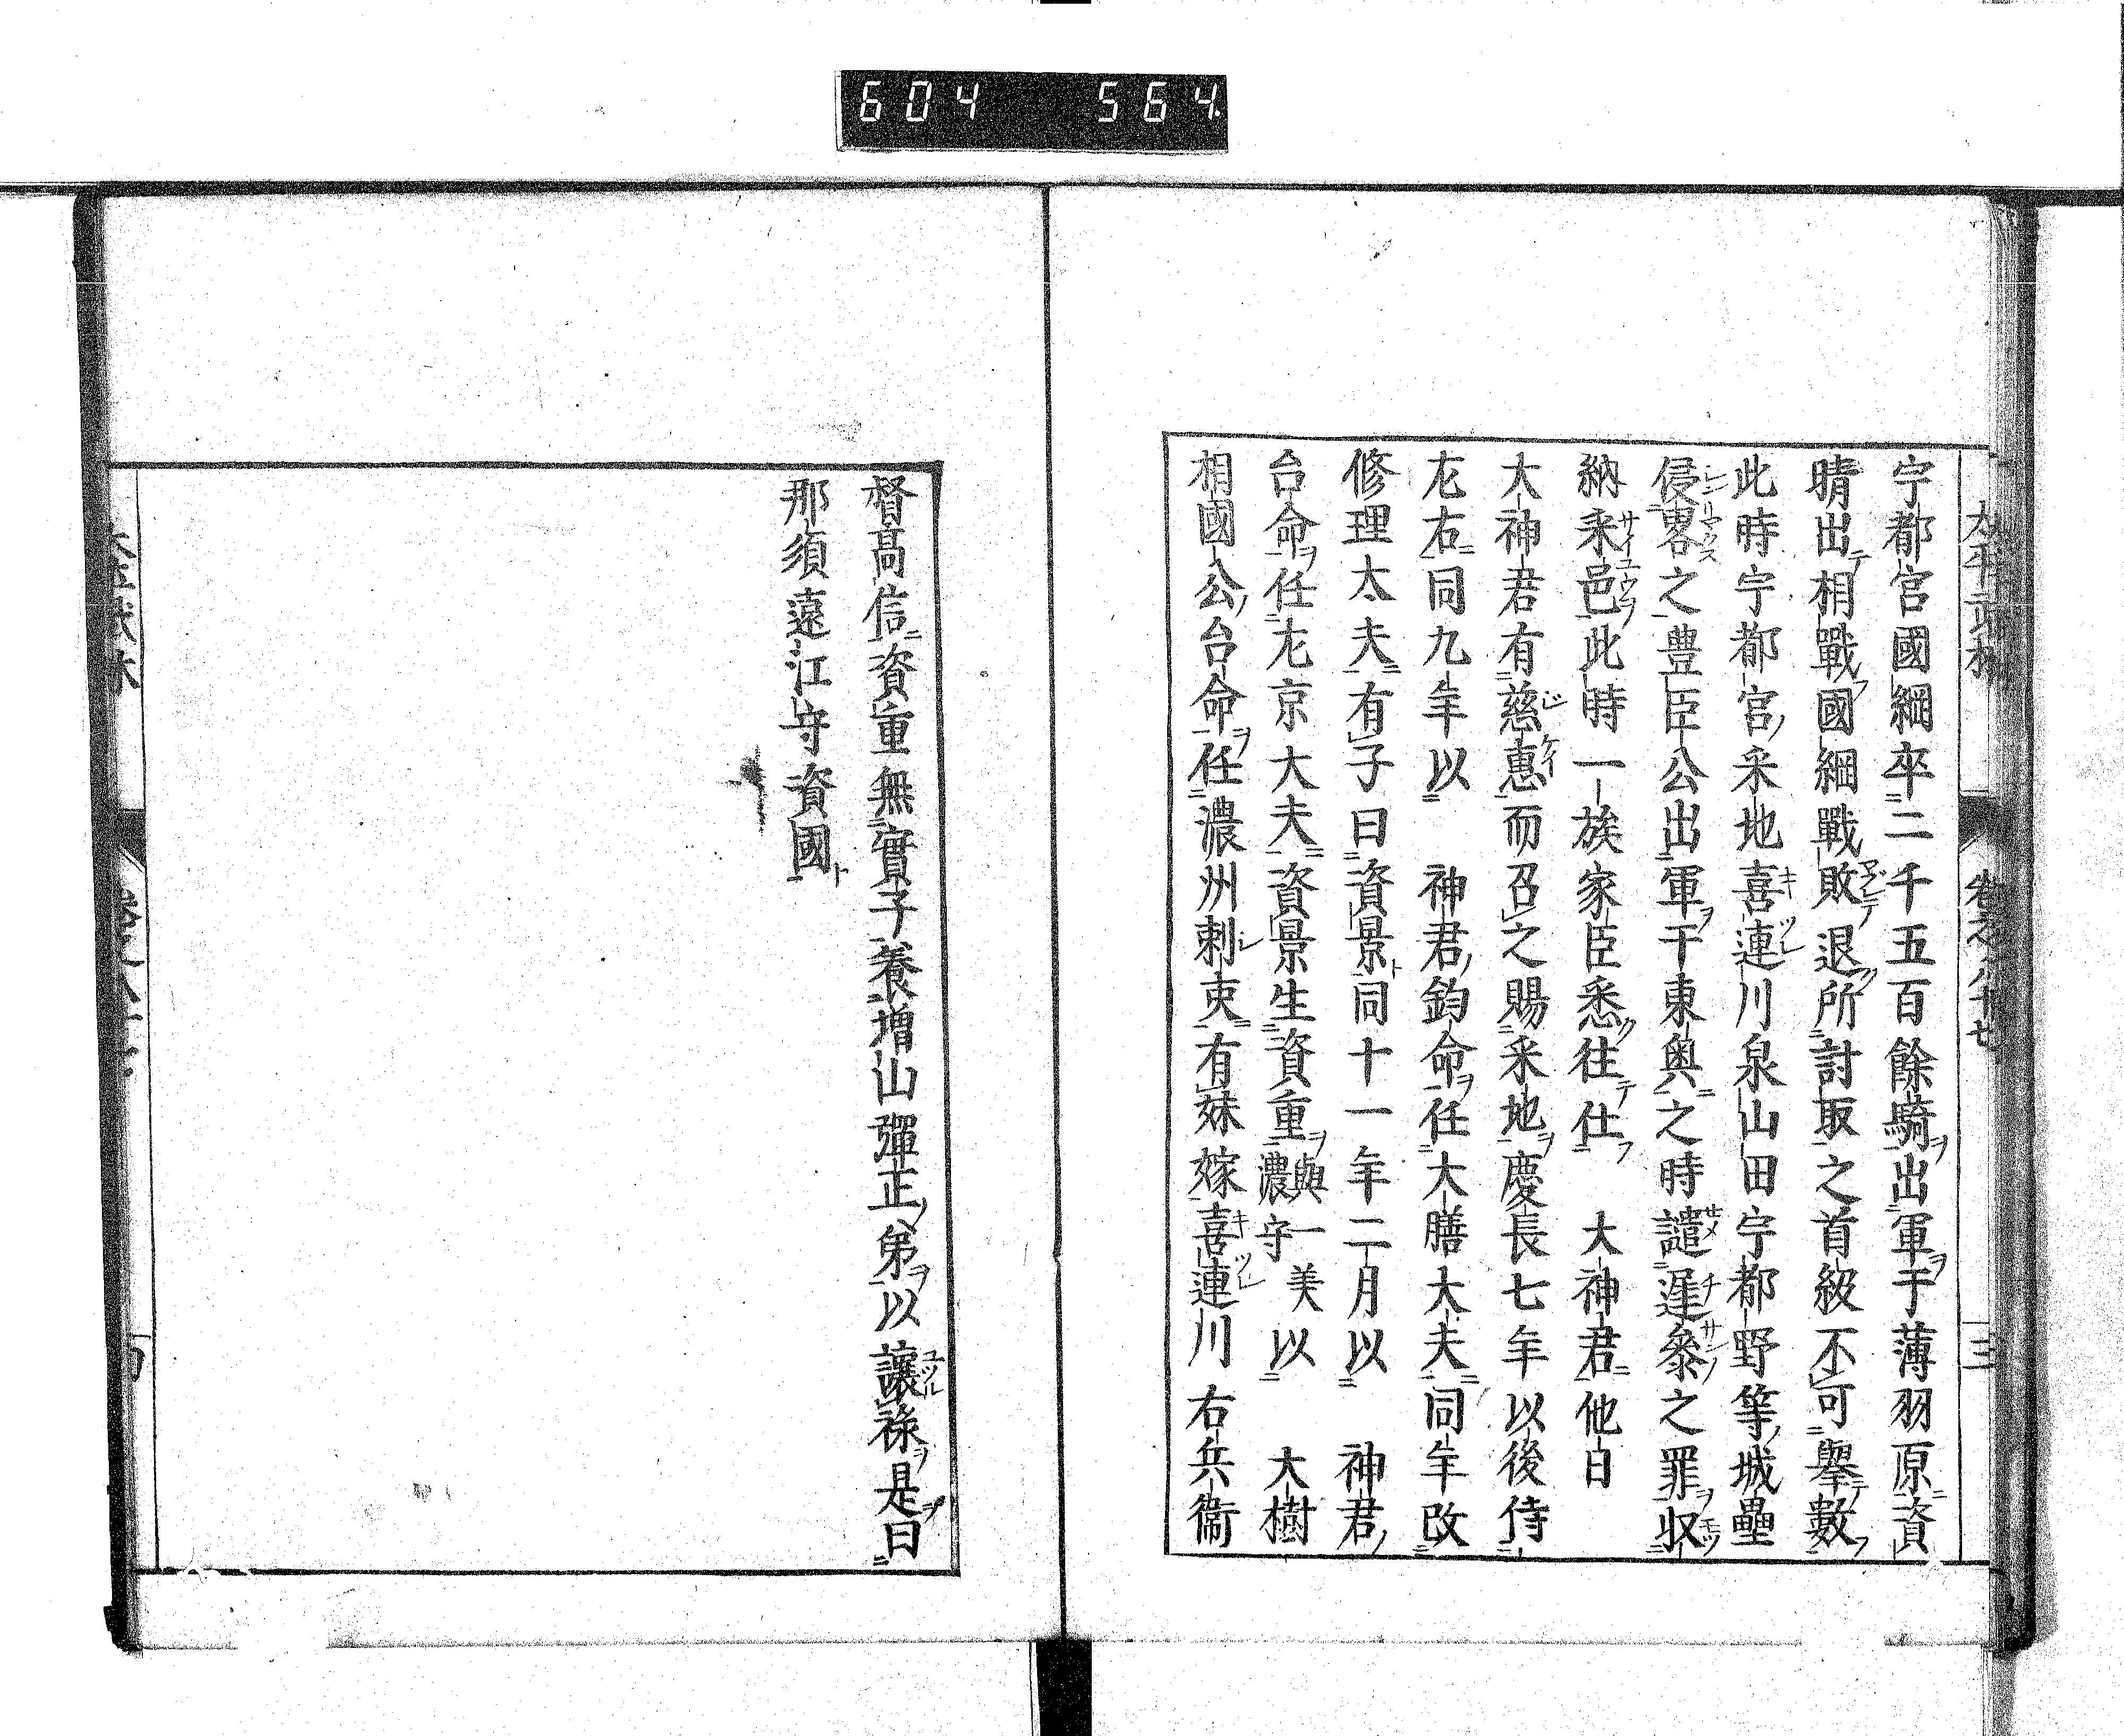 604 564
宇都宮國綱卒二千五百餘騎ヲ出軍ヲ于薄羽原ニ資
晴出テ相戰フ國綱戰敗テ退ク所討取之首級不可擧テ數フ
此時宇都宮ノ采地喜連川泉山田宇都野等ノ城壘
侵畧之豊臣公出軍ヲ于東奥ニ之時譴遅參之罪ヲ収
納采邑ヲ此時一族家臣悉ク往テ仕フ 大神君ニ他日
大神君有慈惠而召之賜采地ヲ慶長七年以後侍
左右ニ同九年以 神君ノ鈞命ヲ任大膳大夫ニ同年改
修理太夫ニ有子曰資景ト同十一年二月以 神君ノ
台命ヲ任左京大夫ニ資景生資重ヲ與一美濃守以 大樹
相國公ノ台命ヲ任濃州刺吏ニ有妹嫁喜連川右兵衞
督高信ニ資重無實子養増山彈正ノ弟ヲ以讓祿ヲ是ヲ曰
那須遠江守資國ト